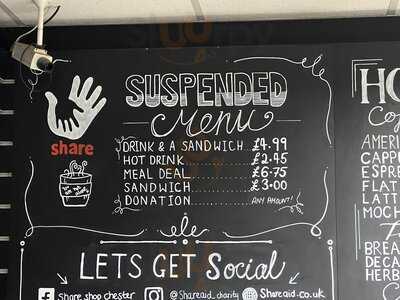 share
SUSPENDED
Menu
DRINK & A SANDWICH £4.99
HOT DRINK £2.45
MEAL DEAL £6.75
SANDWICH £3.00
DONATION ANY AMOUNT!
LETS GET Social
Share shop chester
@Shareaid_charity
Shareaid.co.uk
HO
Co
AMERI
CAPP
ESPRE
FLAT
LATT
MOCH
BREA
DECA
HERB